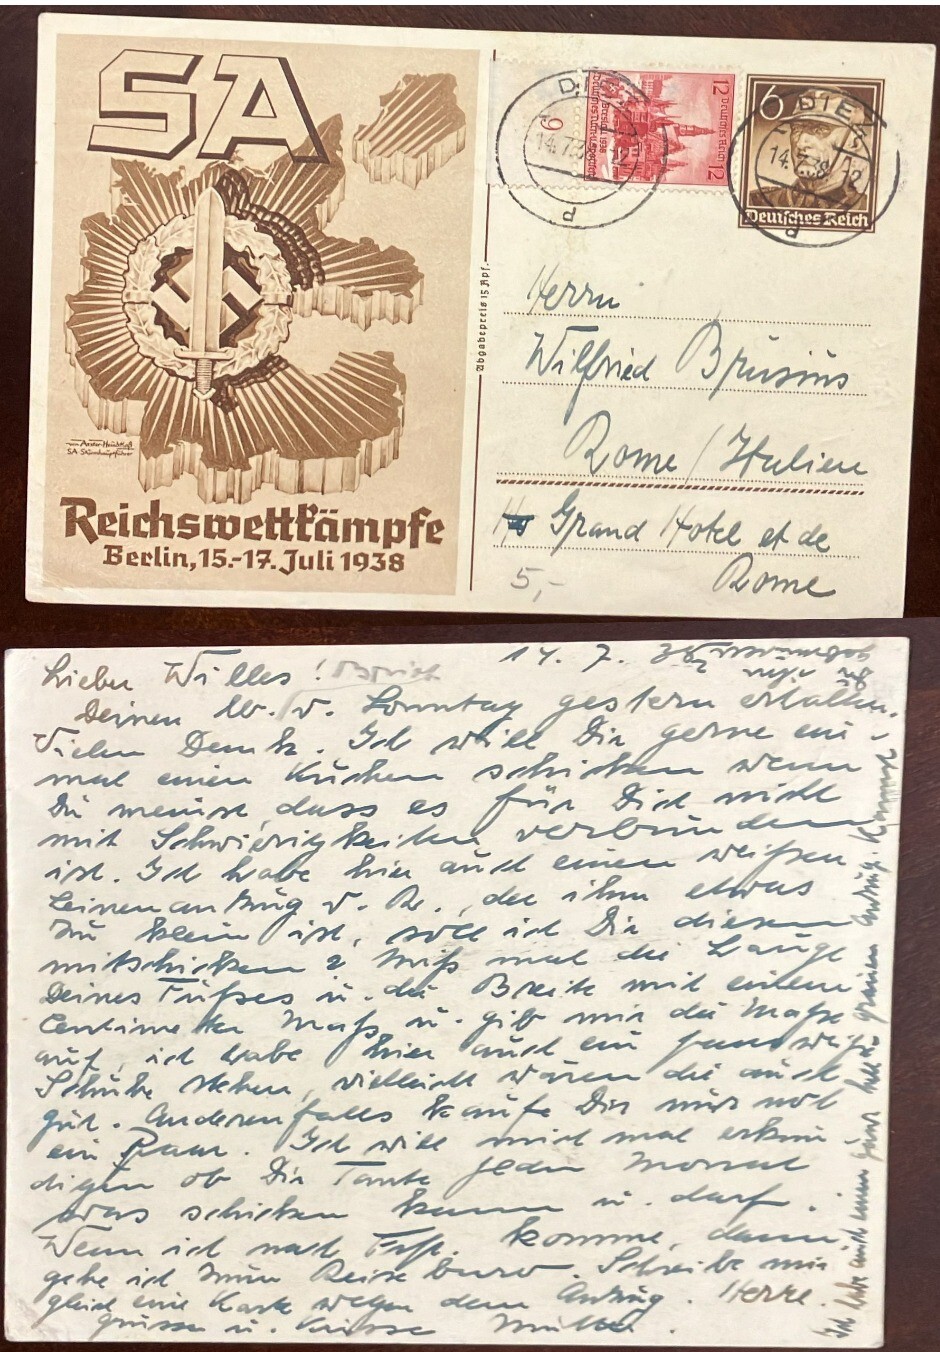 SA
Reichswettkämpfe
Berlin, 15.-17. Juli 1938
SA Sturmhauptführer
Abgabepreis 15 Rpf.
9
12 Deutsches Reich 12
Breslau 1938
DIEZ
14.7.38 12
d
6
DIEZ
14.7.38 12
d
Deutsches Reich
Herrn
Wilfried Brusius
Rome / Italien
Grand Hotel et de
Rome
5,-
14. 7. 38
Lieber Willes!
Deinen v. Sonntag gestern erhalten.
Vielen Dank. Ich will Dir gerne ein
mal einen Kuchen schicken wenn
Du meinst, dass es für Dich nicht
mit Schwierigkeiten verbunden
ist. Ich habe hier auch einen weißen
Leinenanzug v. R., der ihm etwas
zu klein ist, soll ich Dir diesen
mitschicken? Miß mal die Länge
Deines Fußes u. die Breite mit einem
Centimeter Maß u. gib mir die Maße
auf, ich habe hier auch ein paar weiße
Schuhe stehen, vielleicht wären die auch
gut. Anderenfalls kaufe Dir nur noch
ein Paar. Ich will mich mal erkun-
digen ob Dir Tante jeden Monat
was schicken kann u. darf.
Wenn ich nach Frkft. komme, dann
gehe ich zum Reisebüro. Schreibe mir
gleich eine Karte wegen dem Anzug. Herzl.
Grüsse u. Küsse Mutter.
Ich habe auch einen ganz hell-grauen Anzug.